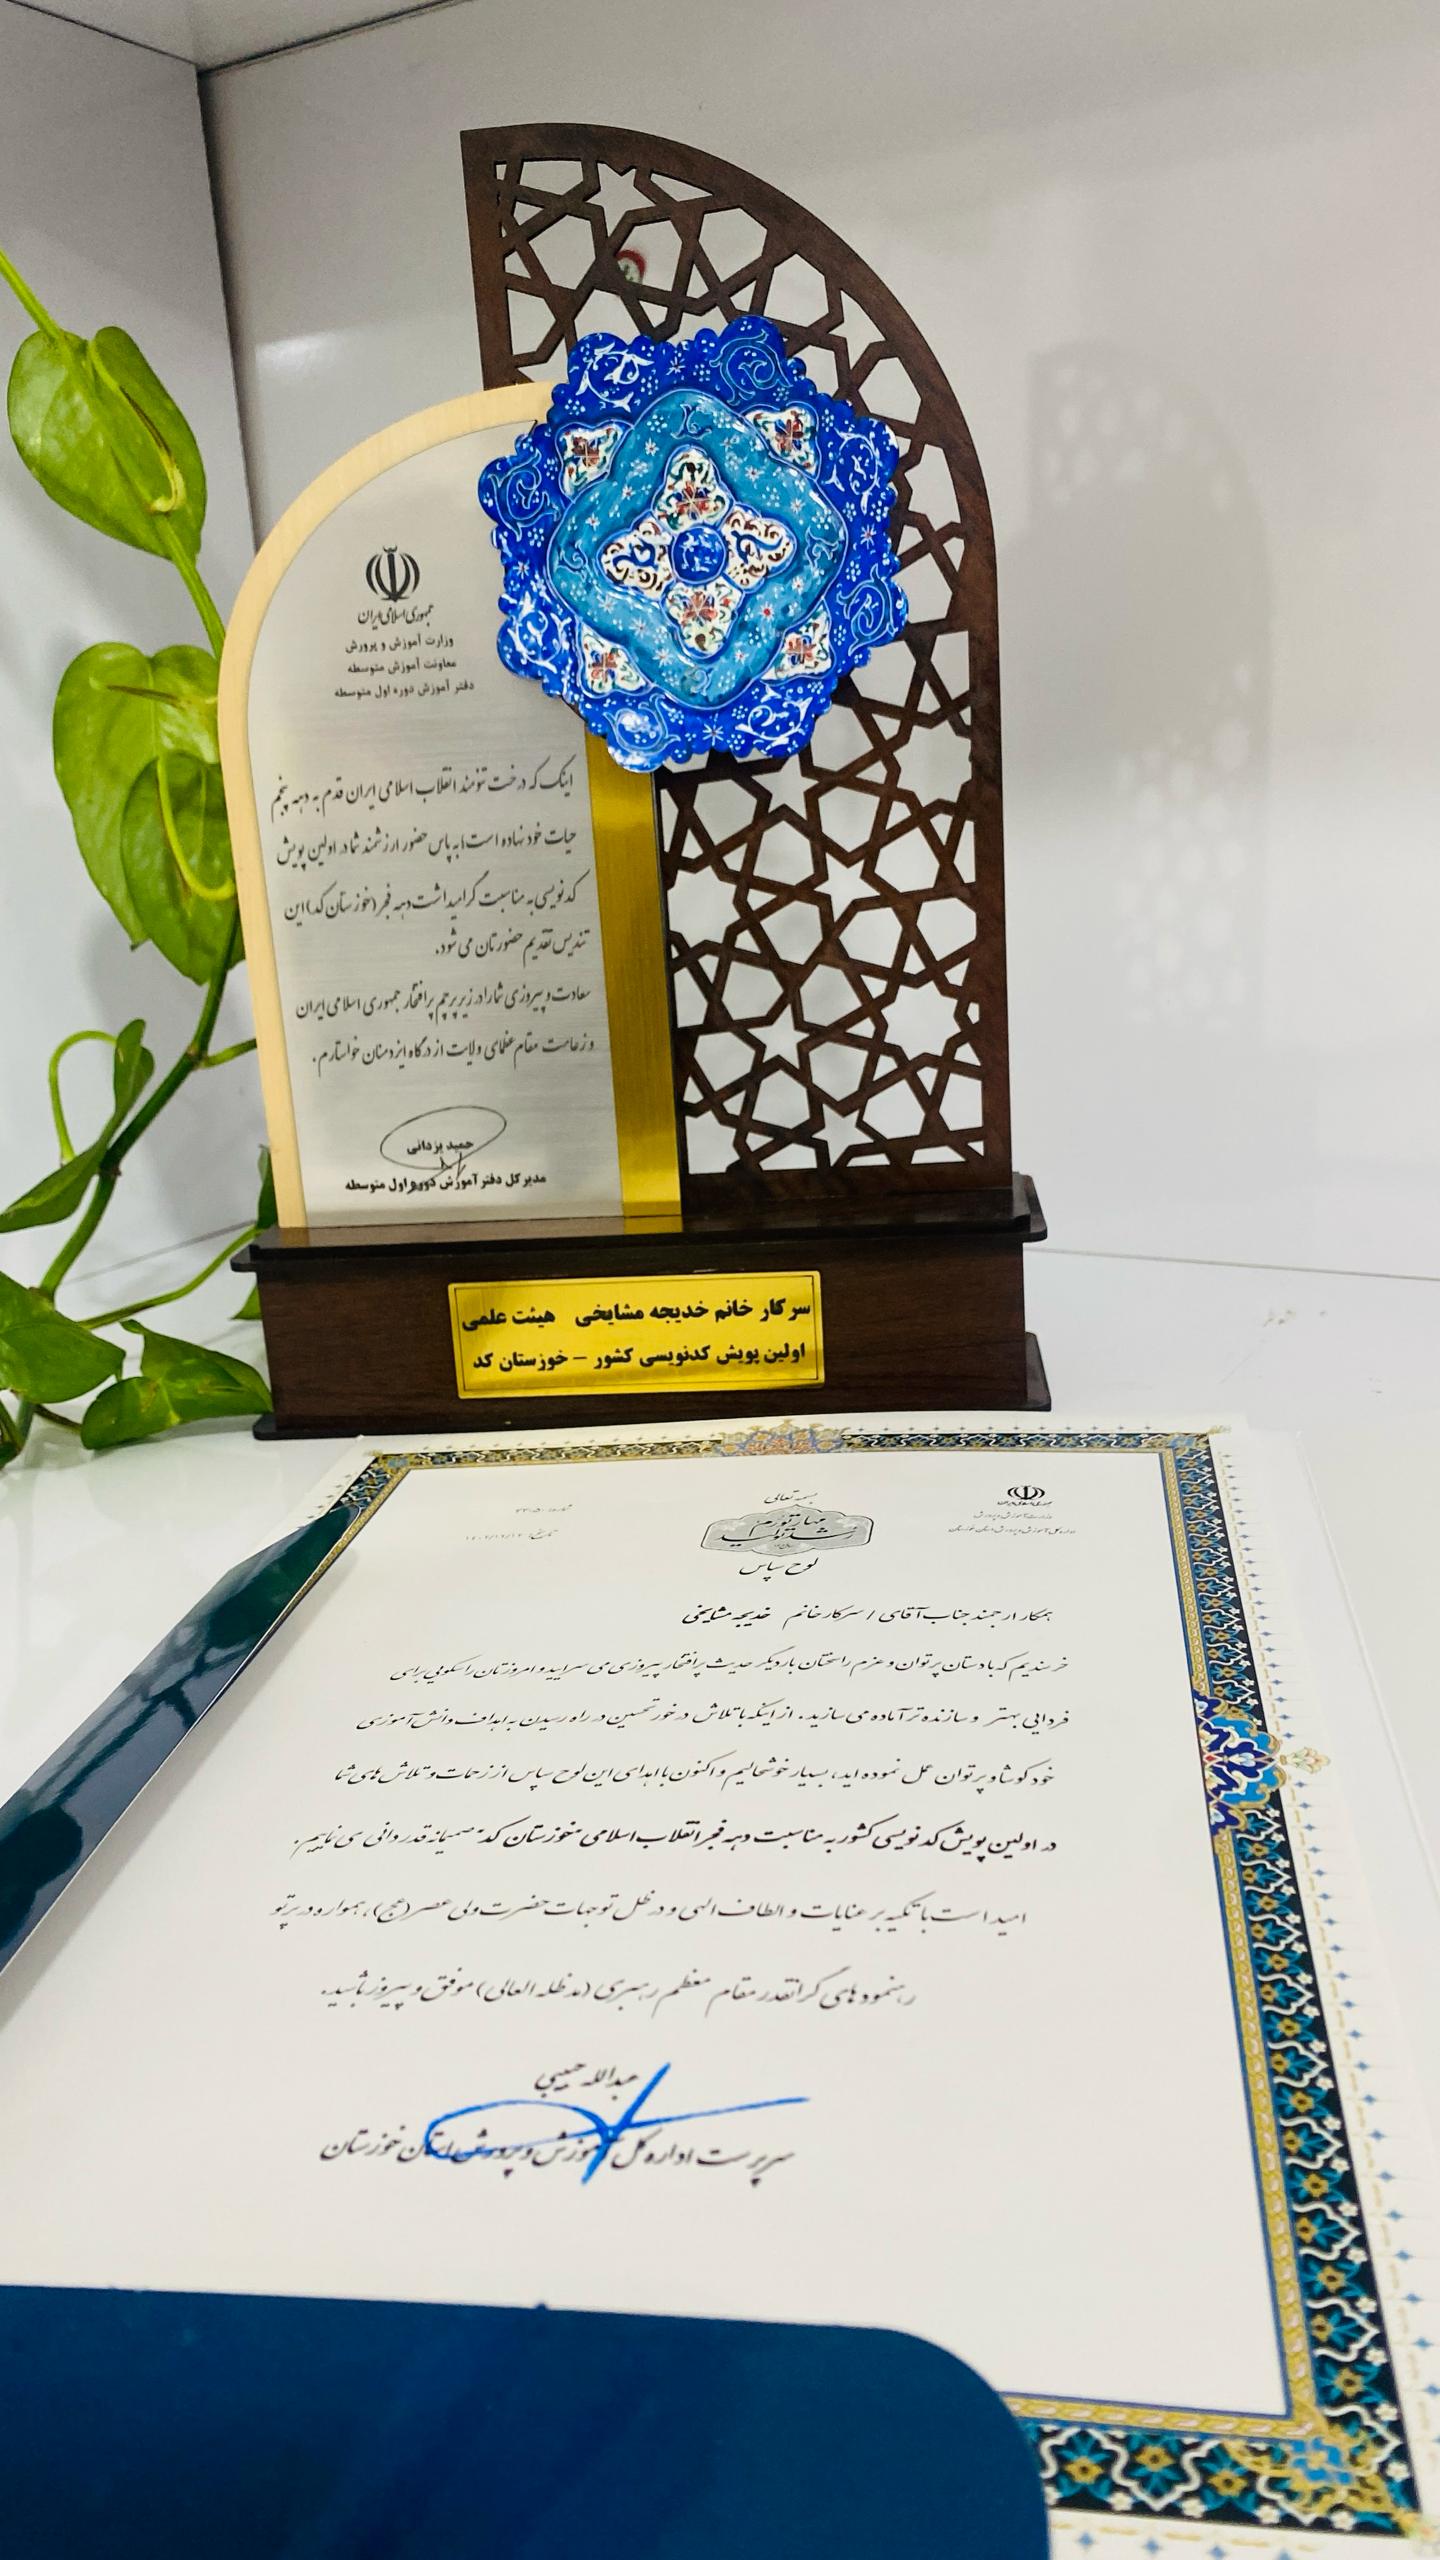 جمهوری اسلامی ایران
وزارت آموزش و پرورش
معاونت آموزش متوسطه
دفتر آموزش دوره اول متوسطه
اینک که درخت تنومند انقلاب اسلامی ایران قدم به دهه پنجم
حیات خود نهاده است به پاس حضور ارزشمند شما در اولین پویش
کدنویسی به مناسبت گرامیداشت دهه فجر (خوزستان کد) این
تندیس تقدیم حضورتان می شود.
سعادت و پیروزی شما را در زیر پرچم پرافتخار جمهوری اسلامی ایران
و زعامت مقام عظمای ولایت از درگاه ایزد منان خواستارم.
حمید یزدانی
مدیر کل دفتر آموزش دوره اول متوسطه
سرکار خانم خدیجه مشایخی هیئت علمی
اولین پویش کدنویسی کشور – خوزستان کد
بسمه تعالی
لوح سپاس
همکار ارجمند جناب آقای / سرکار خانم خدیجه مشایخی
خرسندیم که با دستان پرتوان و عزم راسختان بار دیگر حدیث پرافتخار پیروزی می سرایید و امروزتان را سکویی برای
فردایی بهتر و سازنده تر آماده می سازید. از اینکه با تلاش در خور تحسین در راه رسیدن به اهداف دانش آموزی
خود کوشا و پرتوان عمل نموده اید، بسیار خوشحالیم و اکنون با اهدای این لوح سپاس از زحمات و تلاش های شما
در اولین پویش کدنویسی کشور به مناسبت دهه فجر انقلاب اسلامی "خوزستان کد" صمیمانه قدردانی می نماییم.
امید است با تکیه بر عنایات و الطاف الهی و در ظل توجهات حضرت ولی عصر (عج)، همواره در پرتو
رهنمودهای گرانقدر مقام معظم رهبری (مدظله العالی) موفق و پیروز باشید.
عبدالله حبیبی
سرپرست اداره کل آموزش و پرورش استان خوزستان